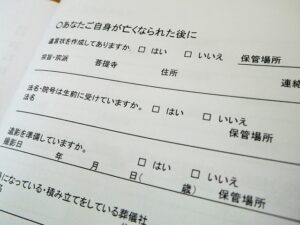 ○あなたご自身が亡くなられた後に
遺言状を作成してありますか。 □ はい □ いいえ 保管場所
宗旨・宗派 菩提寺 住所 連絡
法名・院号は生前に受けていますか。 □ はい □ いいえ
法名 保管場所
遺影を準備していますか。 □ はい □ いいえ
撮影日 年 月 日( 歳) 保管場所
になっている・積み立てをしている葬儀社